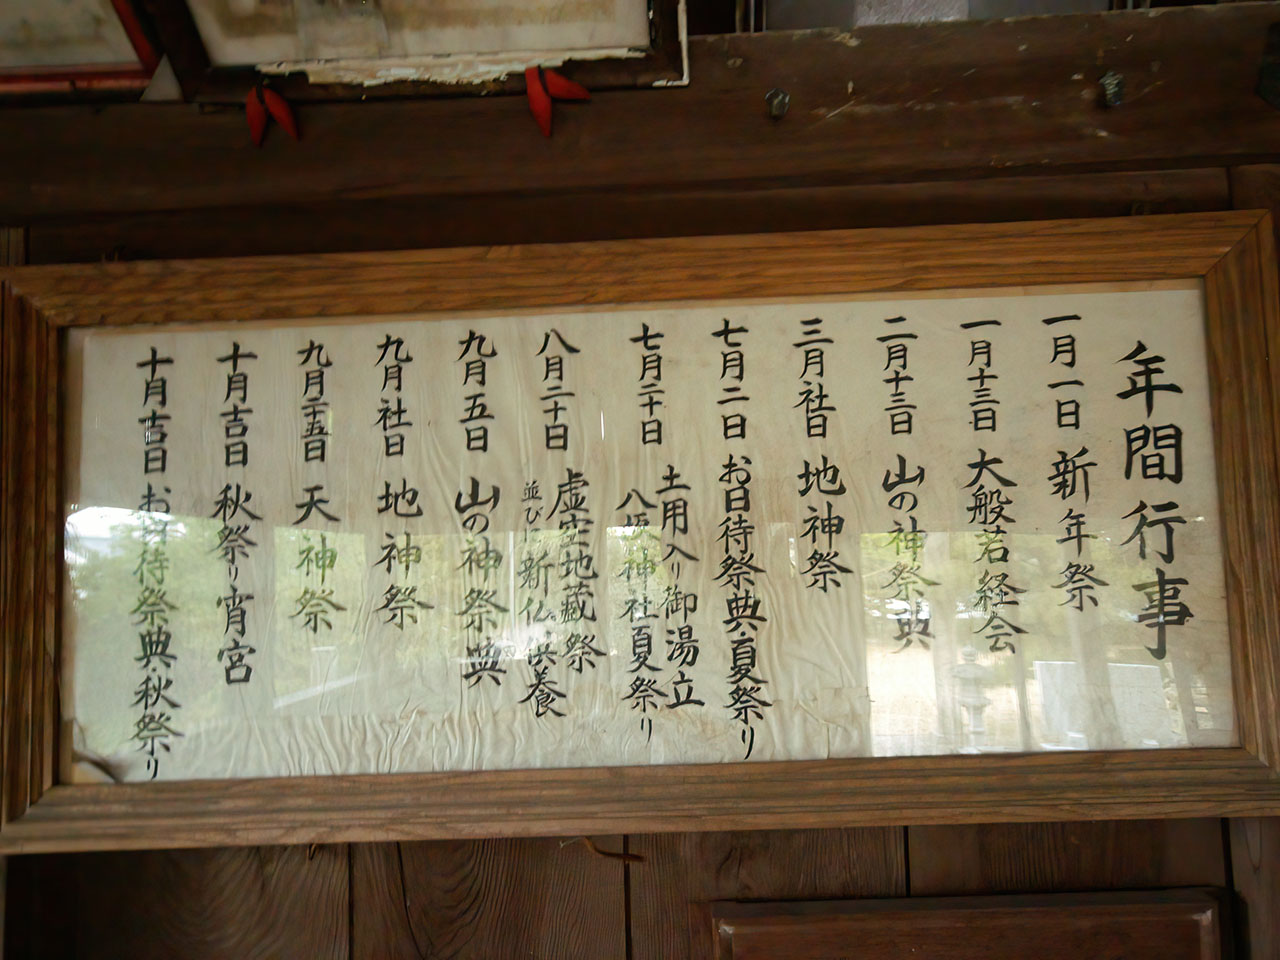 年間行事
一月一日 新年祭
一月十三日 大般若経会
二月十三日 山の神祭典
三月社日 地神祭
七月二日 お日待祭典・夏祭り
七月二十日 土用入り御湯立
八坂神社夏祭り
八月二十日 虚空地蔵祭
並びに新仏供養
九月五日 山の神祭典
九月社日 地神祭
九月二十五日 天神祭
十月吉日 秋祭り宵宮
十月吉日 お日待祭典秋祭り